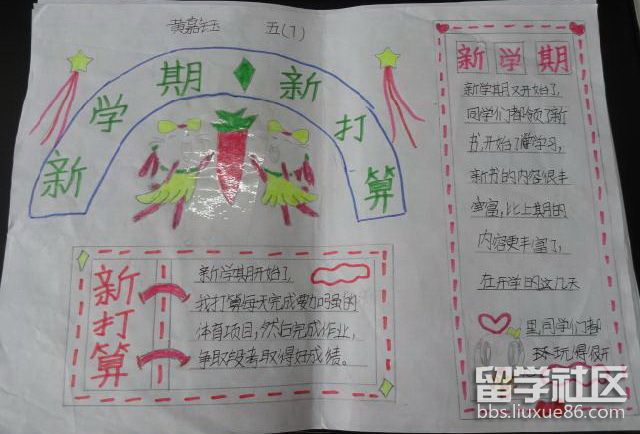 黄嘉钰 五(1)
新学期新打算
新打算
新学期开始了
我打算每天完成要加强的
体育项目,然后完成作业,
争取段考取得好成绩。
新学期
新学期又开始了,
同学们都领了新
书,开始了学习,
新书的内容很丰
富,比上期的
内容更丰富了,
在开学的这几天
里,同学们都
环玩得很开
留学社区
bbs.liuxue86.com